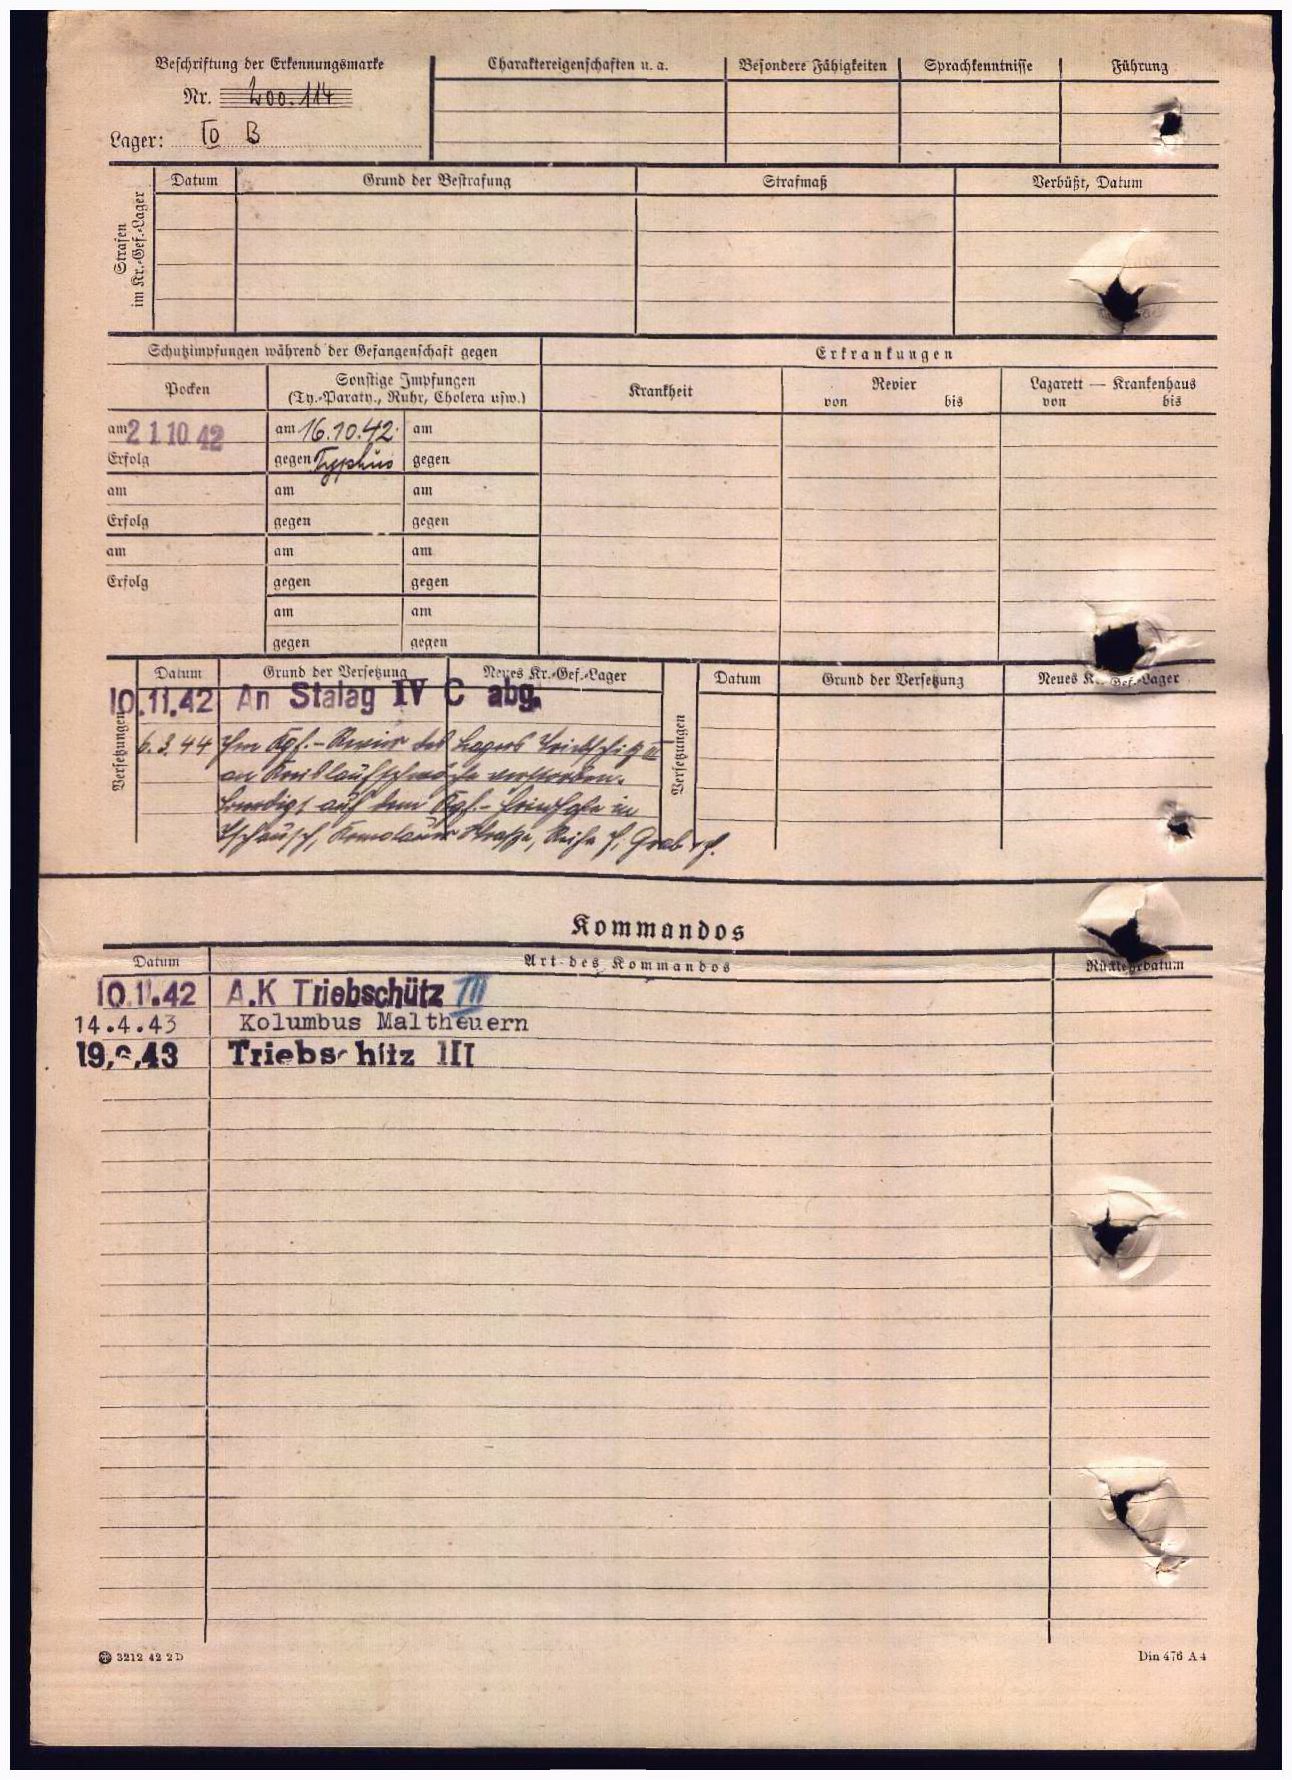 Beschriftung der Erkennungsmarke
Nr. 200.114
Lager: IV B
Charaktereigenschaften u. a.
Besondere Fähigkeiten
Sprachkenntnisse
Führung
Strafen im Kr.-Gef.-Lager
Datum
Grund der Bestrafung
Strafmaß
Verbüßt, Datum
Schutzimpfungen während der Gefangenschaft gegen
Erkrankungen
Pocken
Sonstige Impfungen
(Ty.-Paraty., Ruhr, Cholera usw.)
Krankheit
Revier
von bis
Lazarett — Krankenhaus
von bis
am 21 10 42 am 16.10.42. am
Erfolg gegen Typhus gegen
am am am
Erfolg gegen gegen
am am am
Erfolg gegen gegen
am am
gegen gegen
Versetzungen
Datum Grund der Versetzung Neues Kr.-Gef.-Lager
10.11.42 An Stalag IV C abg.
6.3.44 Im Kgf.-Revier des Lagers Triebschitz III
an Kreislaufschwäche verstorben.
Beerdigt auf dem Kgf.-Friedhofe in
Tschausch, Komotauer Straße, Reihe Grab
Versetzungen
Datum Grund der Versetzung Neues Kr.-Gef.-Lager
Kommandos
Datum Art des Kommandos Rückkehrdatum
10.11.42 A.K Triebschütz III
14.4.43 Kolumbus Maltheuern
43 Triebschitz III
3212 42 2D
Din 476 A4